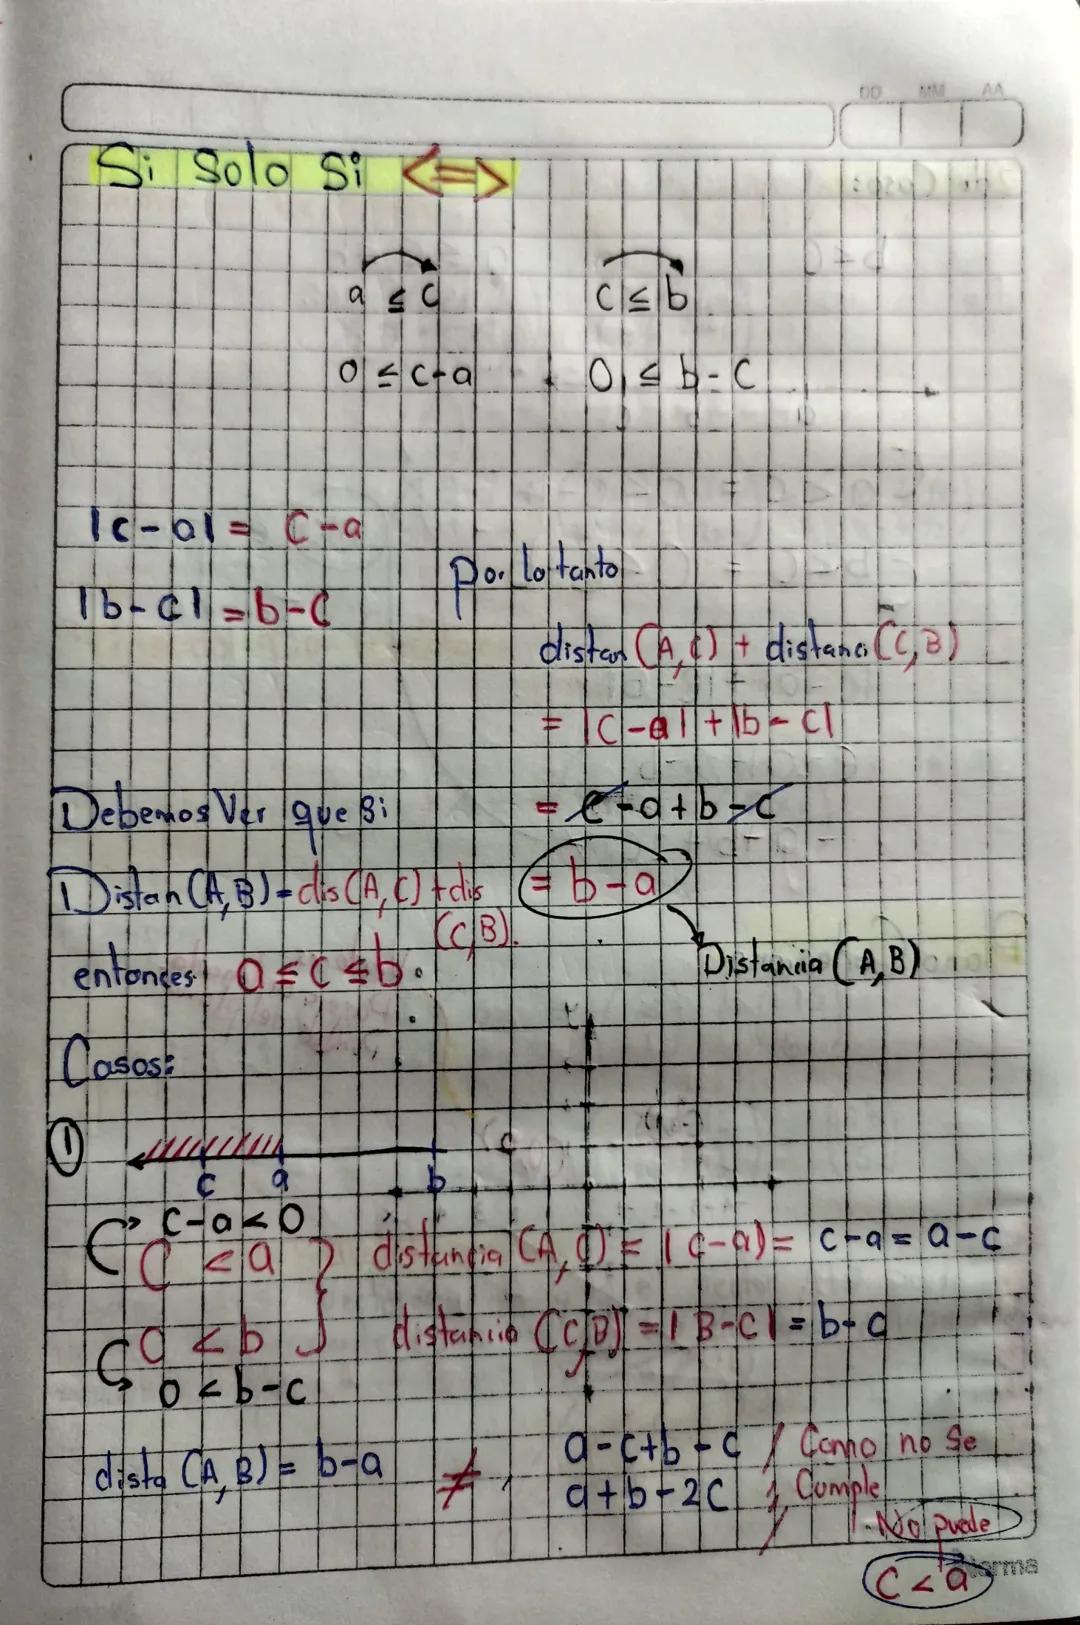 DD MM AA
Si Solo Si <=>
a ≤ c c ≤ b
0 ≤ c-a 0 ≤ b-c
|c-a| = c-a
Por lo tanto
|b-c| = b-c
distan (A,C) + distanci (C,B)
= |c-a| + |b-c|
Debemos Ver que si
= c-a+b-c
Distan (A,B) = dis (A,C) + dis (C,B).
= b-a
entonces a ≤ c ≤ b.
Distancia (A,B)
Casos:
①
c a b
c-a<0
c < a
distancia (A,C) = |c-a) = c-a = a-c
c < b
distancia (C,B) = |B-c| = b-c
0 < b-c
dista (A,B) = b-a ≠ a-c+b-c
a+b-2c
Como no Se
Cumple
No puede
c < a
Norma